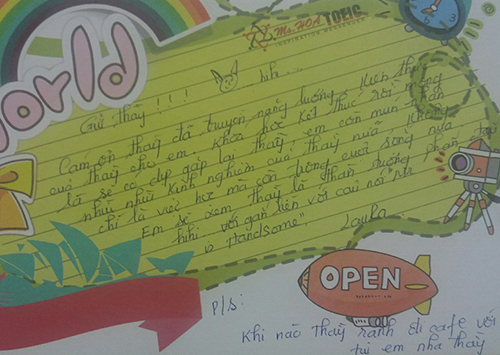 World
Ms. HOA TOEIC
Gửi thầy!!! hihi...
Cảm ơn thầy đã truyền năng lượng, kiến thức
của thầy cho em. Khóa học kết thúc rồi
là sẽ có dịp gặp lại thầy, em còn mún
nhìu nhìu kinh nghiệm của thầy nữa. Không
chỉ là việc học mà còn trong cuộc sống nữa
Em sẽ xem thầy là "thần tượng
hihi với gắn liền với câu nói "Mr
is Handsome".
Layla
OPEN
P/s:
Khi nào thầy rảnh đi cafe với
tụi em nha thầy